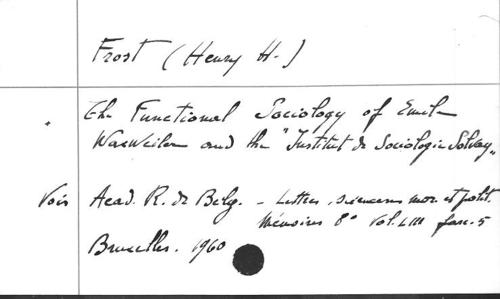 Frost (Henry H.)
The Functional Sociology of Emile
Waxweiler and the "Institut de Sociologie Solvay"
Voir Acad. R. de Belg. – Lettres, sciences mor. et polit.
Mémoires 8° Vol. LIII fasc. 5
Bruxelles. 1960